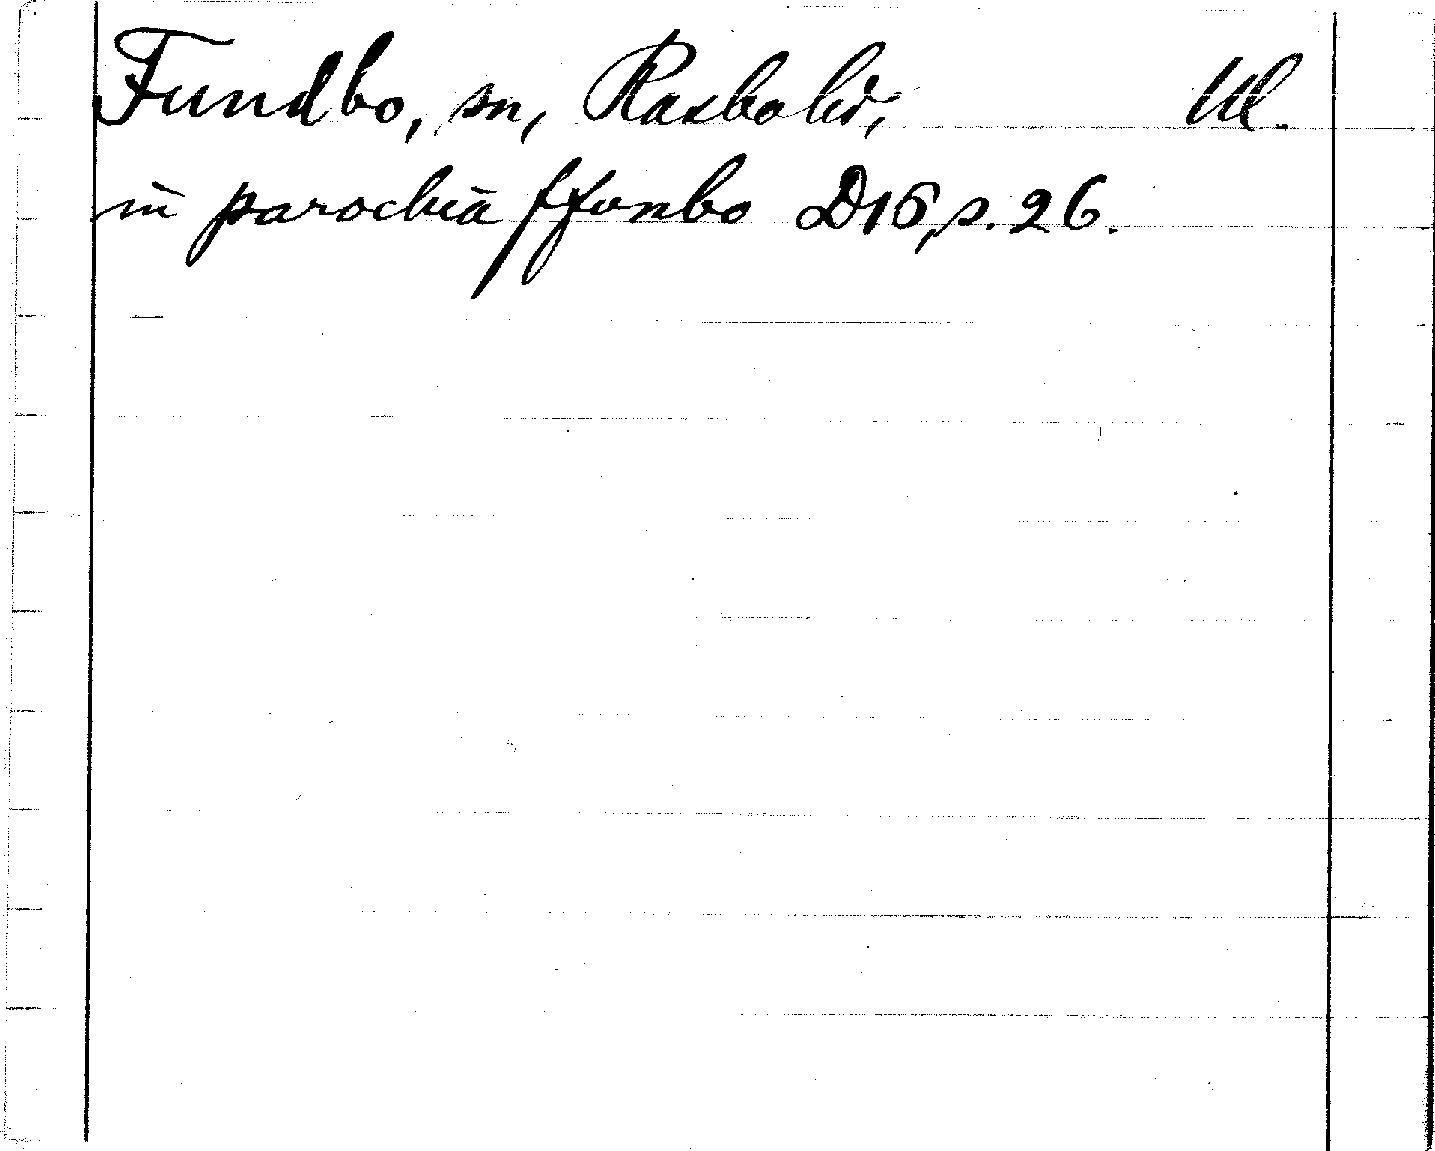 Fundbo, sn, Rasbo hd, Upl.
in parochia ffonbo D15, s. 26.